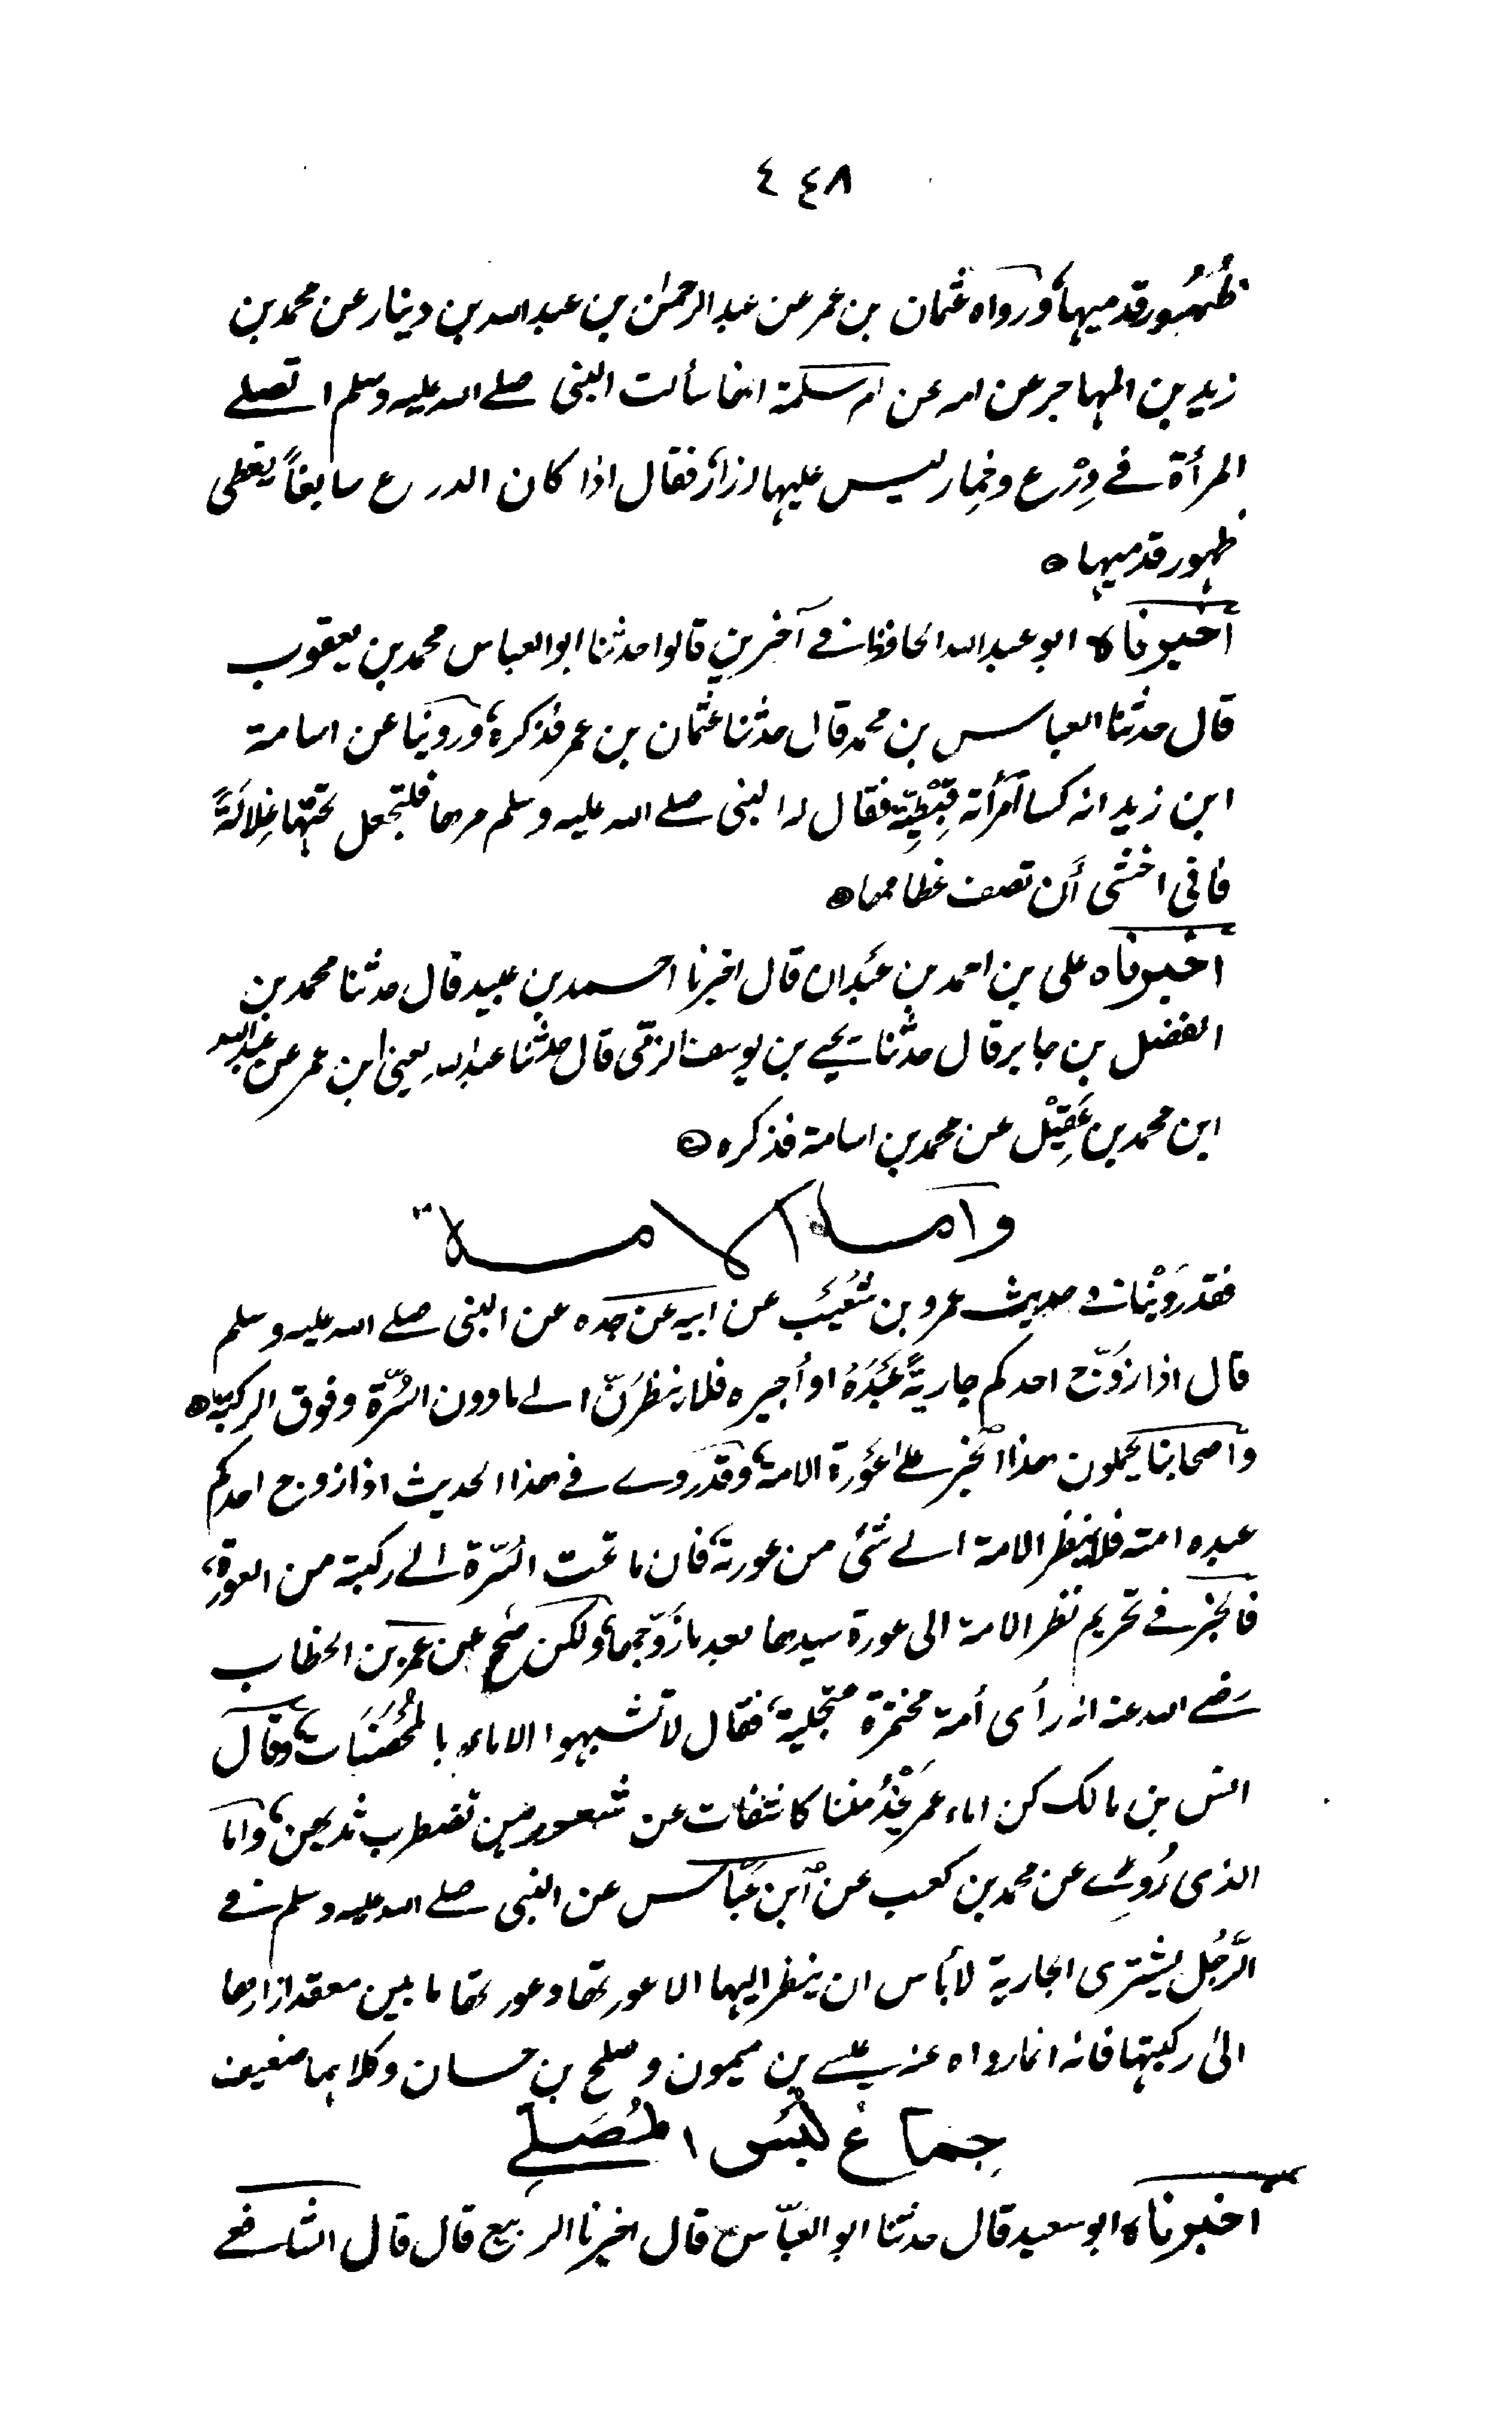 ٤٤٨
ظُهُور قدميها، ورواه عثمان بن عمر عن عبد الرحمٰن بن عبد الله بن دينار عن محمد بن
زيد بن المهاجر عن امه عن ام سلمة انها سألت النبى صلے الله عليه وسلم اتصلے
المرأة فے دِرْع وخِمار ليس عليها ازارٌ فقال اذا كان الدرع سابغاً يغطى
ظهور قدميها ۞
أخبرناه ابو عبد الله الحافظ فے آخرين قالوا حدثنا ابو العباس محمد بن يعقوب
قال حدثنا العباس بن محمد قال حدثنا عثمان بن عمر فذكره، وروينا عن اسامة
ابن زيد انه كسا امرأته قِبْطِيّة فقال له النبى صلے الله عليه وسلم مرها فلتجعل تحتها غِلالةً
فانى اخشى أن تصف عظامها ۞
اخبرناه على بن احمد بن عَبدان قال اخبرنا احمد بن عبيد قال حدثنا محمد بن
الفضل بن جابر قال حدثنا يحيے بن يوسف الزمّى قال حدثنا عبيد الله يعنى ابن عمر عن عبد الله
ابن محمد بن عَقِيْل عن محمد بن اسامة فذكره ۞
واما الامة
فقد رَوَيْنا فے حديث عمرو بن شُعَيْب عن ابيه عن جده عن النبى صلے الله عليه وسلم
قال اذا زَوّج احدكم جاريةً عَبْدَهُ او أجيره فلا ينظرَنّ الے ما دون السُّرّة وفوق الركبة ۞
واصحابنا يحملون هذا الخبر علےٰ عَوْرة الامة، وقد روے فے هذا الحديث اذا زوج احدكم
عبده امته فلا ينظر الامة الے شئ من عورته، فان ما تحت السّرة الے ركبة من العورة،
فالخبر فے تحريم نظر الامة الى عورة سيدها بعد ما زَوّجها، ولكن صحّ عن عمر بن الخطاب
رَضے الله عنه انه رأى أمة مختمرة متجلببة، فقال لا تشبهوا الاماء بالمُحْصَنَات، وقال
انس بن مالك كن اماء عمر يَخْدُمننا كاشفات عن شعورهن تضطرب ثديهن، واما
الذى رُوِىَ عن محمد بن كعب عن ابن عَبّاس عن النبى صلے الله عليه وسلم فے
الرّجُل يشترى الجارية لا بأس ان ينظر اليها الا عورتها وعورتها ما بين معقد ازارها
الىٰ ركبتها فانه انما رواه عنه عيسے بن ميمون وصلح بن حسان وكلاهما ضعيف
جِماعُ لُبْس المُصَلِّے
اخبرناه ابو سعيد قال حدثنا ابو العبّاس قال اخبرنا الربيع قال قال الشافعے